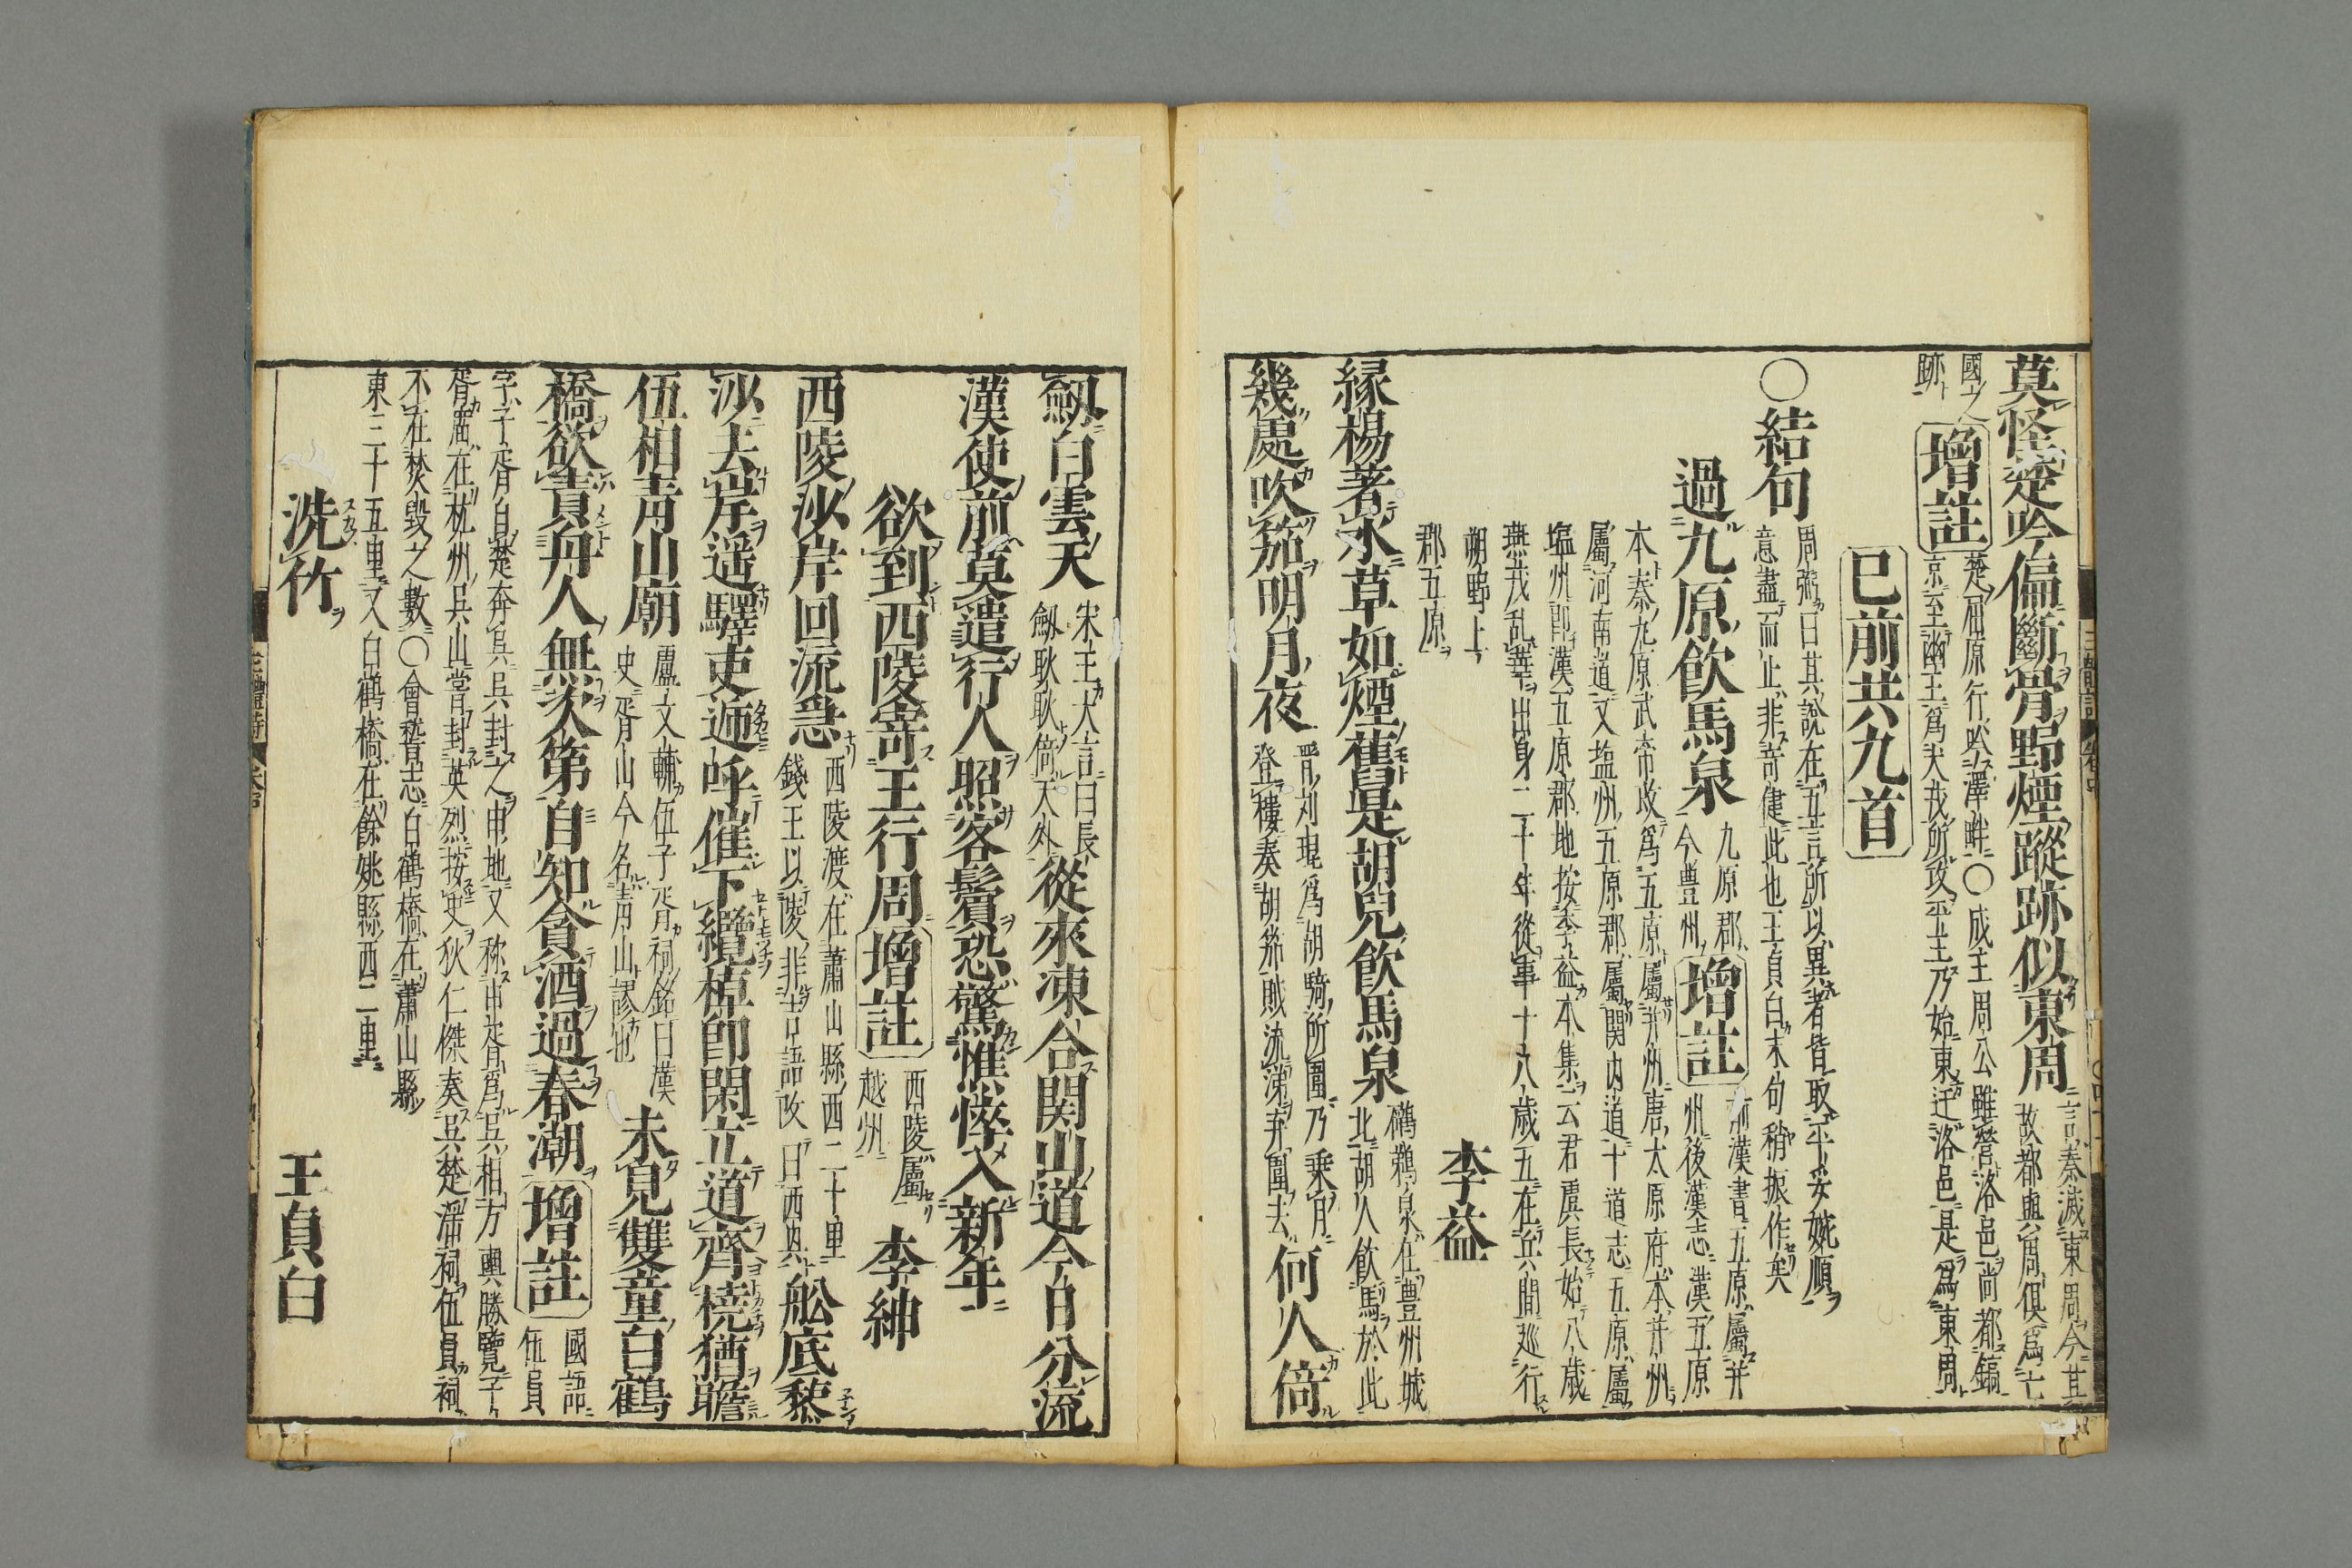 莫怪楚吟偏斷骨野煙蹤跡似東周言秦滅東周今其
故都與周俱爲亡
國之
跡
增註
楚屈原行吟澤畔○成王周公雖營洛邑尚都鎬
京至幽王爲犬戎所攻平王乃始東迁洛邑是爲東周
已前共九首
○結句
周弼曰其說在五言所以異者皆取平妥婉順
意盡而止非奇健此也王貞白末句稍振作矣
過九原飲馬泉
九原郡
今豊州
增註
前漢書五原屬并
州後漢志漢五原
本秦九原武帝改爲五原屬并州唐太原府本并州
屬河南道又塩州五原郡屬関内道十道志五原屬
塩州即漢五原郡地按李益本集云君虞長始八歳
燕戎乱華出身二十年從事十八歳五在兵間廵行
朔野上
郡五原
李益
緑楊著水草如煙舊是胡兒飲馬泉
鵜泉在豊州城
北胡人飲馬於此
幾處吹笳明月夜
晋刘琨爲胡騎所圍乃乗月
登樓奏胡笳賊流涕弃圍去
何人倚
劔白雲天
宋玉大言曰長
劔耿耿倚天外
從來凍合関山道今日分流
漢使前莫遣行人照客鬢恐驚憔悴入新年
欲到西陵寄王行周
增註
西陵屬
越州
李紳
西陵沙岸回流急
西陵渡在蕭山縣西二十里
錢王以陵非吉語改曰西興
舩底黏
沙去岸遥驛吏逓呼催下纜棹郎閑立道齊橈猶瞻
伍相青山廟
盧文輔伍子胥祠銘曰漢
史胥山今名青山謬也
未見雙童白鶴
橋欲責舟人無次第自知貪酒過春潮
增註
國語
伍員
字子胥自楚奔吳吳封之申地又称申胥爲吳相方輿勝覽子
胥廟在杭州吳山嘗封英烈按史狄仁傑奏吳楚滛祠伍員祠
不在焚毀之數○會稽志白鶴橋在蕭山縣
東三十五里又白鶴橋在餘姚縣西二里
洗竹
王貞白